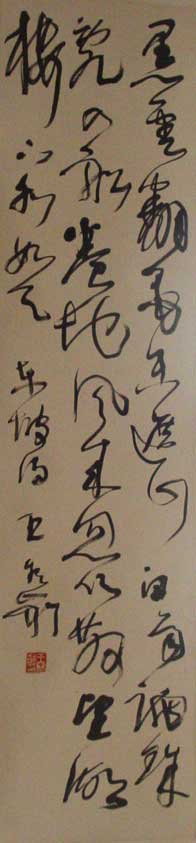 黑雲翻墨未遮山白雨跳珠
亂入船卷地風来忽吹散望湖
樓下水如天 东坡诗 王